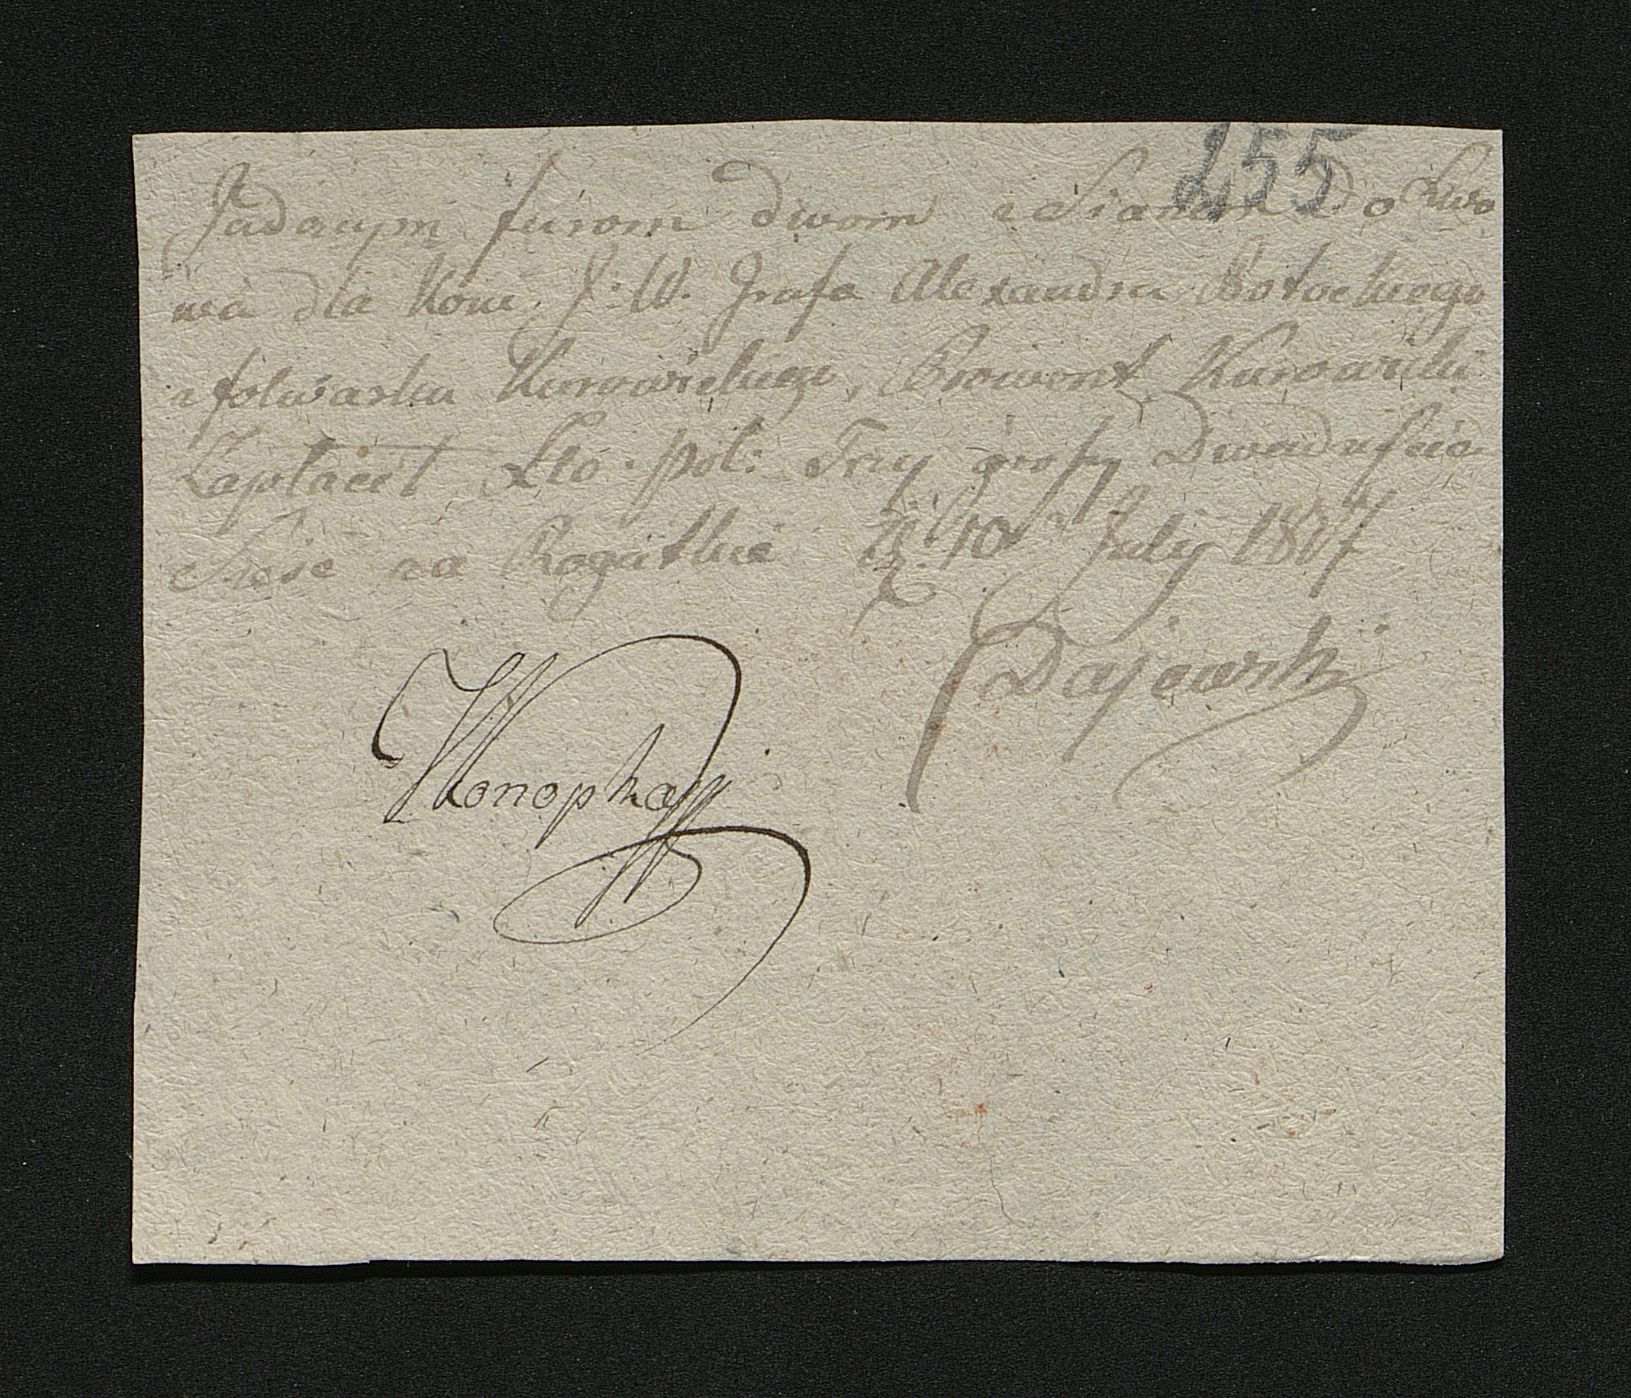 255
Jadącym furom dwom z Sianem do Lwo
wa dla Koni J: W. Grafa Alexandra Potockiego
z folwarku Kurowickiego, Prowent Kurowicki
Zapłacił Zło. pol: Trzy groszy Dwadzieścia
Sześć na Rogatkie 10 July 1817
Dajewski
Konopka